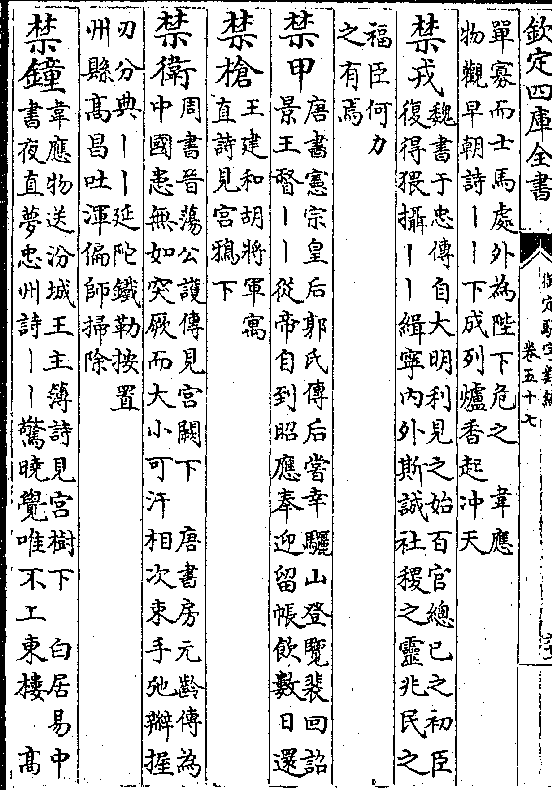 欽定四庫全書
御定駢字類編
卷五十七
單寡而士馬處外為陛下危之　韋應
物觀早朝詩｜｜下成列爐香起沖天
禁戎
魏書于忠傳自大明利見之始百官總己之初臣
復得猥攝｜｜緝寧內外斯誠社稷之靈兆民之
福臣何力
之有焉
禁甲
唐書憲宗皇后郭氏傳后嘗幸驪山登覽裴回詔
景王督｜｜從帝自到昭應奉迎留帳飲數日還
禁槍
王建和胡將軍寓
直詩見宮鴉下
禁衛
周書晉蕩公護傳見宮闕下　唐書房元齡傳為
中國患無如突厥而大小可汗相次束手弛辮握
刃分典｜｜延陀鐵勒按置
州縣髙昌吐渾偏師掃除
禁鐘
韋應物送汾城王主簿詩見宮樹下　白居易中
書夜直夢忠州詩｜｜驚曉覺唯不工東樓　髙